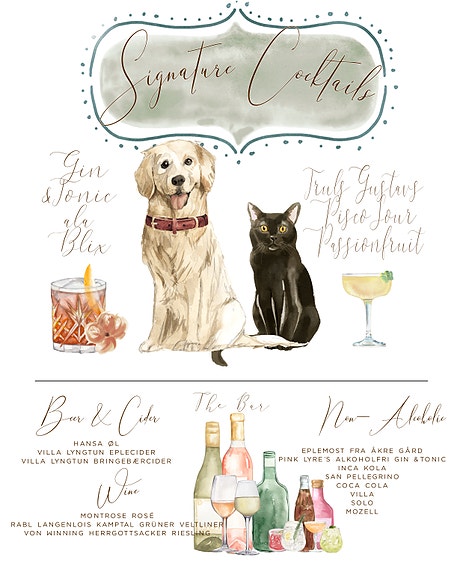 Signature Cocktails
Gin
&Tonic
ala
Blix
Truls Gustavs
Pisco Sour
Passionfruit
The Bar
Beer & Cider
HANSA ØL
VILLA LYNGTUN EPLECIDER
VILLA LYNGTUN BRINGEBÆRCIDER
Wine
MONTROSE ROSÉ
RABL LANGENLOIS KAMPTAL GRÜNER VELTLINER
VON WINNING HERRGOTTSACKER RIESLING
Non-Alcoholic
EPLEMOST FRA ÅKRE GÅRD
PINK LYRE'S ALKOHOLFRI GIN &TONIC
INCA KOLA
SAN PELLEGRINO
COCA COLA
VILLA
SOLO
MOZELL